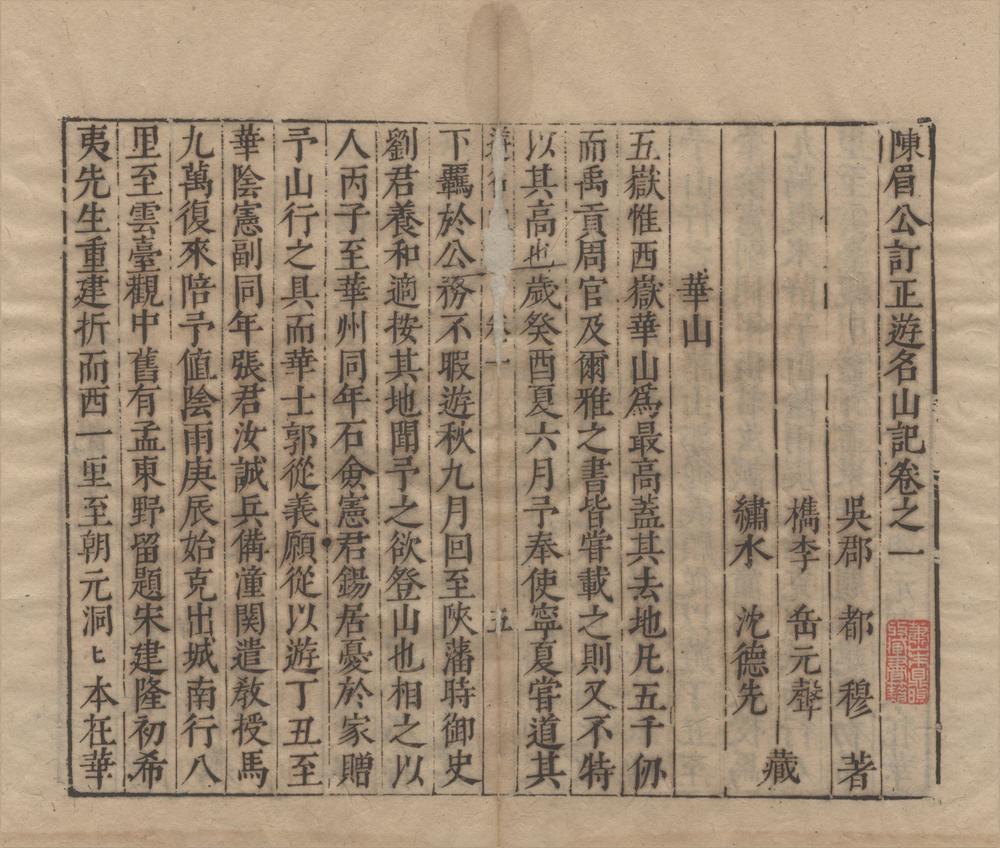 陳眉公訂正遊名山記卷之一
吳郡 都穆 著
檇李 岳元聲
繡水 沈德先
藏
華山
五嶽惟西嶽華山爲最高蓋其去地凡五千仞
而禹貢周官及爾雅之書皆甞載之則又不特
以其高也歲癸酉夏六月予奉使寧夏甞道其
卷一 五
下羈於公務不暇遊秋九月回至陝藩時御史
劉君養和適按其地聞予之欲登山也相之以
人丙子至華州同年石僉憲君鍚居憂於家贈
予山行之具而華士郭從義願從以遊丁丑至
華陰憲副同年張君汝誠兵備潼關遣敎授馬
九萬復來陪予值陰雨庚辰始克出城南行八
里至雲臺觀中舊有孟東野留題宋建隆初希
夷先生重建折而西一里至朝元洞匕本在華